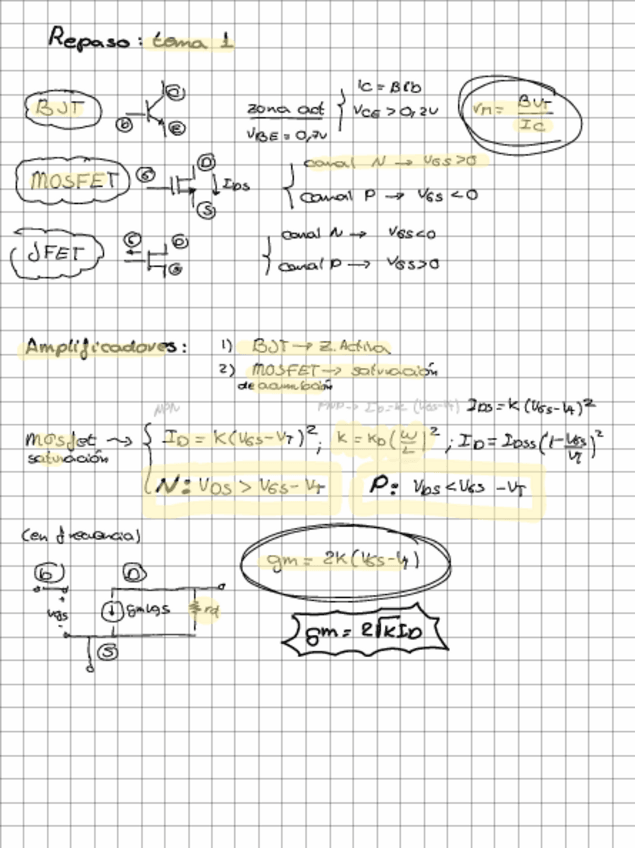 Repaso: tema 1
BJT
b
c
e
zona act
VBE = 0,7V
IC = B·Ib
VCE > 0,2V
rπ = BVT / IC
MOSFET
G
D
S
IDS
canal N → VGS>0
canal P → VGS <0
JFET
G
D
S
canal N → VGS<0
canal P → VGS>0
Amplificadores: 1) BJT → Z.Activa
2) MOSFET → saturación
de acumulación
NPN
PNP → ID=K (VGS-VT)
IDS = K(VGS-VT)²
Mosfet → saturación
ID = K(VGS-VT)² ; K = KD (W/L)² ; ID = IDSS (1-VGS/VT)²
N: VDS > VGS-VT
P: VDS < VGS -VT
(en frecuencia)
G
D
vgs
gmVgs
rd
S
gm = 2K(VGS-VT)
gm = 2√KID